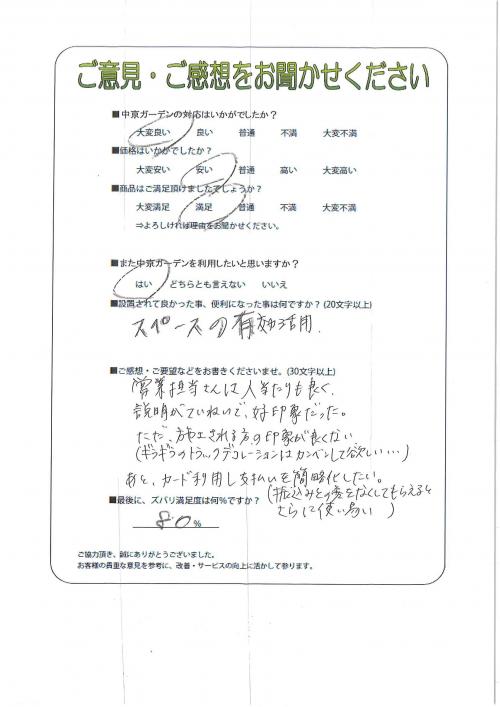 ご意見・ご感想をお聞かせください
■中京ガーデンの対応はいかがでしたか？
大変良い 良い 普通 不満 大変不満
■価格はいかがでしたか？
大変安い 安い 普通 高い 大変高い
■商品はご満足頂けましたでしょうか？
大変満足 満足 普通 不満 大変不満
⇒よろしければ理由をお聞かせください。
■また中京ガーデンを利用したいと思いますか？
はい どちらとも言えない いいえ
■設置されて良かった事、便利になった事は何ですか？(20文字以上)
スペースの有効活用.
■ご感想・ご要望などをお書きくださいませ。(30文字以上)
営業担当さんは人当たりも良く、
説明がていねいで、好印象だった。
ただ、施工される方の印象が良くない
(ギラギラのトラックデコレーションはカンベンして欲しい…)
あと、カード利用し支払いを簡略化したい。
(振込みとの差をなくしてもらえると
さらに使い易い)
■最後に、ズバリ満足度は何%ですか？
80%
ご協力頂き、誠にありがとうございました。
お客様の貴重な意見を参考に、改善・サービスの向上に活かして参ります。